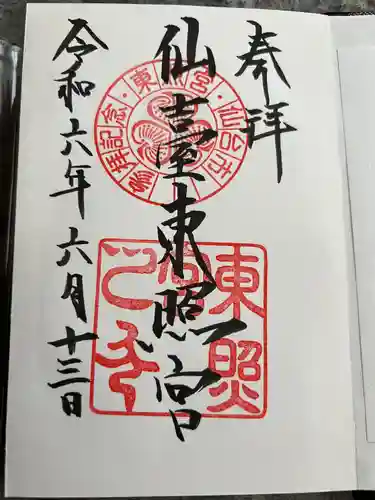 奉拝
仙臺東照宮
令和六年六月十三日
東照宮・仙台市・参拝記念・
東照宮